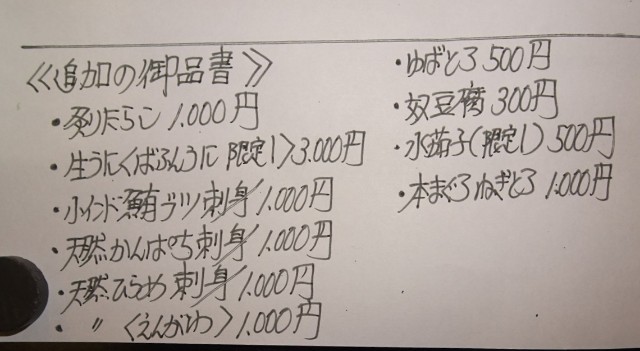 《追加の御品書》
・炙りたらこ 1.000円
・生うに〈ばふんうに 限定1〉3.000円
・小インド鮪ブツ刺身 1.000円
・天然かんぱち刺身 1.000円
・天然ひらめ刺身 1.000円
・〃〈えんがわ〉1.000円
・ゆばとろ 500円
・奴豆腐 300円
・水茄子(限定1) 500円
・本まぐろねぎとろ 1.000円